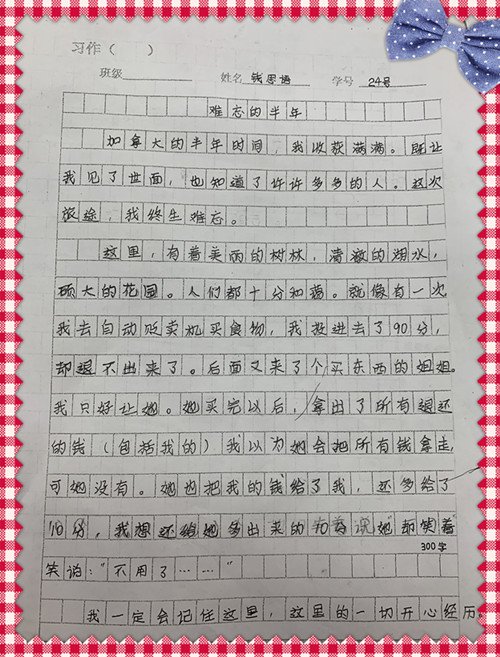 习作（    ）
班级 姓名 钱思语 学号 24号
难忘的半年
加拿大的半年时间，我收获满满。既让
我见了世面，也知道了许许多多的人。这次
旅途，我终生难忘。
这里，有着美丽的树林，清澈的湖水，
硕大的花园。人们都十分和蔼。就像有一次
我去自动贩卖机买食物，我投进去了90分，
却退不出来了。后面又来了个买东西的姐姐。
我只好让她。她买完以后，拿出了所有退还
的钱（包括我的）我以为她会把所有钱拿走，
可她没有。她也把我的钱给了我，还多给了
10分，我想还给她多出来的10分 她却笑着
300字
笑说："不用了……"
我一定会记住这里，这里的一切开心经历。